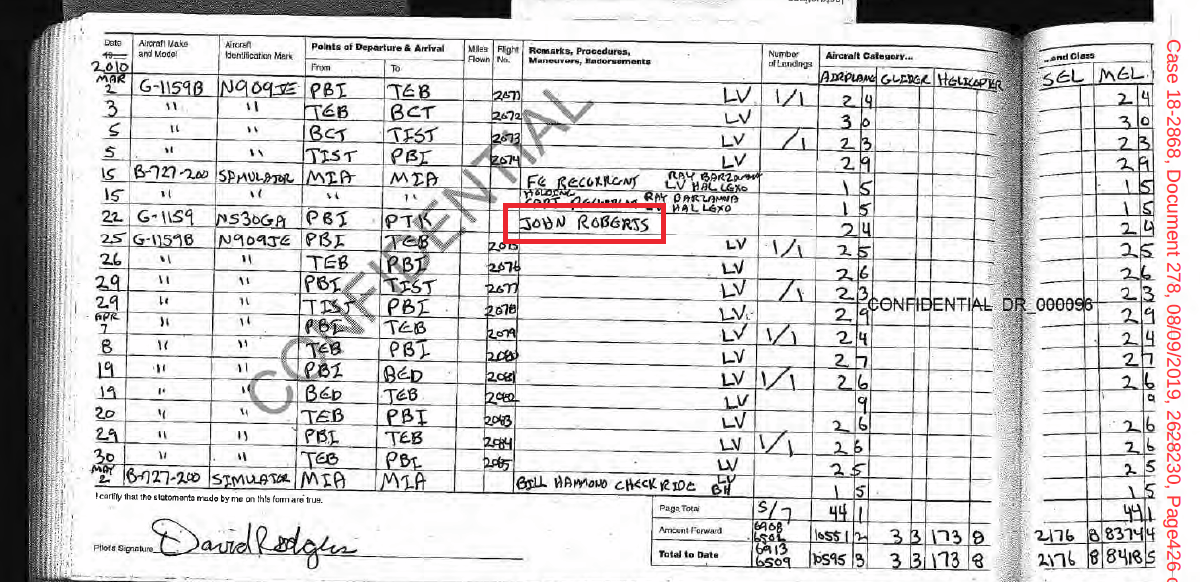 Date
19
2010
Aircraft Make and Model
Aircraft Identification Mark
Points of Departure & Arrival
From To
Miles Flown
Flight No.
Remarks, Procedures, Maneuvers, Endorsements
Number of Landings
Aircraft Category...
AIRPLANE GLIDER HELICOPTER
...and Class
SEL MEL
MAR 2 G-1159B N909JE PBI TEB 2071 LV 1/1 2 4 2 4
3 " " TEB BCT 2072 LV 3 0 3 0
5 " " BCT TIST 2073 LV /1 2 3 2 3
5 " " TIST PBI 2074 LV 2 9 2 9
15 B-727-200 SIMULATOR MIA MIA FE RECURRENT RAY LV HAL LEXO 1 5 1 5
15 " " " " HOLDING RAY HAL LEXO 1 5 1 5
22 G-1159 N530GA PBI PTK JOHN ROBERTS 2 4 2 4
25 G-1159B N909JE PBI TEB 2075 LV 1/1 2 5 2 5
26 " " TEB PBI 2076 LV 2 6 2 6
29 " " PBI TIST 2077 LV /1 2 3 2 3
29 " " TIST PBI 2078 LV 2 9 2 9
APR 7 " " PBI TEB 2079 LV 1/1 2 4 2 4
8 " " TEB PBI 2080 LV 2 7 2 7
19 " " PBI BED 2081 LV 1/1 2 6 2 6
19 " " BED TEB 2082 LV 9 9
20 " " TEB PBI 2083 LV 2 6 2 6
29 " " PBI TEB 2084 LV 1/1 2 6 2 6
30 " " TEB PBI 2085 LV 2 5 2 5
MAY 2 B-727-200 SIMULATOR MIA MIA BILL HAMOND CHECKRIDE LV BH 1 5 1 5
I certify that the statements made by me on this form are true.
Pilot's Signature David Rodgers
Page Total 5/7 44 1 44 1
Amount Forward 6908 6502 10551 2 3 3 173 8 2176 8 8374 4
Total to Date 6913 6509 10595 3 3 3 173 8 2176 8 8418 5
CONFIDENTIAL
CONFIDENTIAL DR_000096
Case 18-2868, Document 278, 08/09/2019, 2628230, Page426